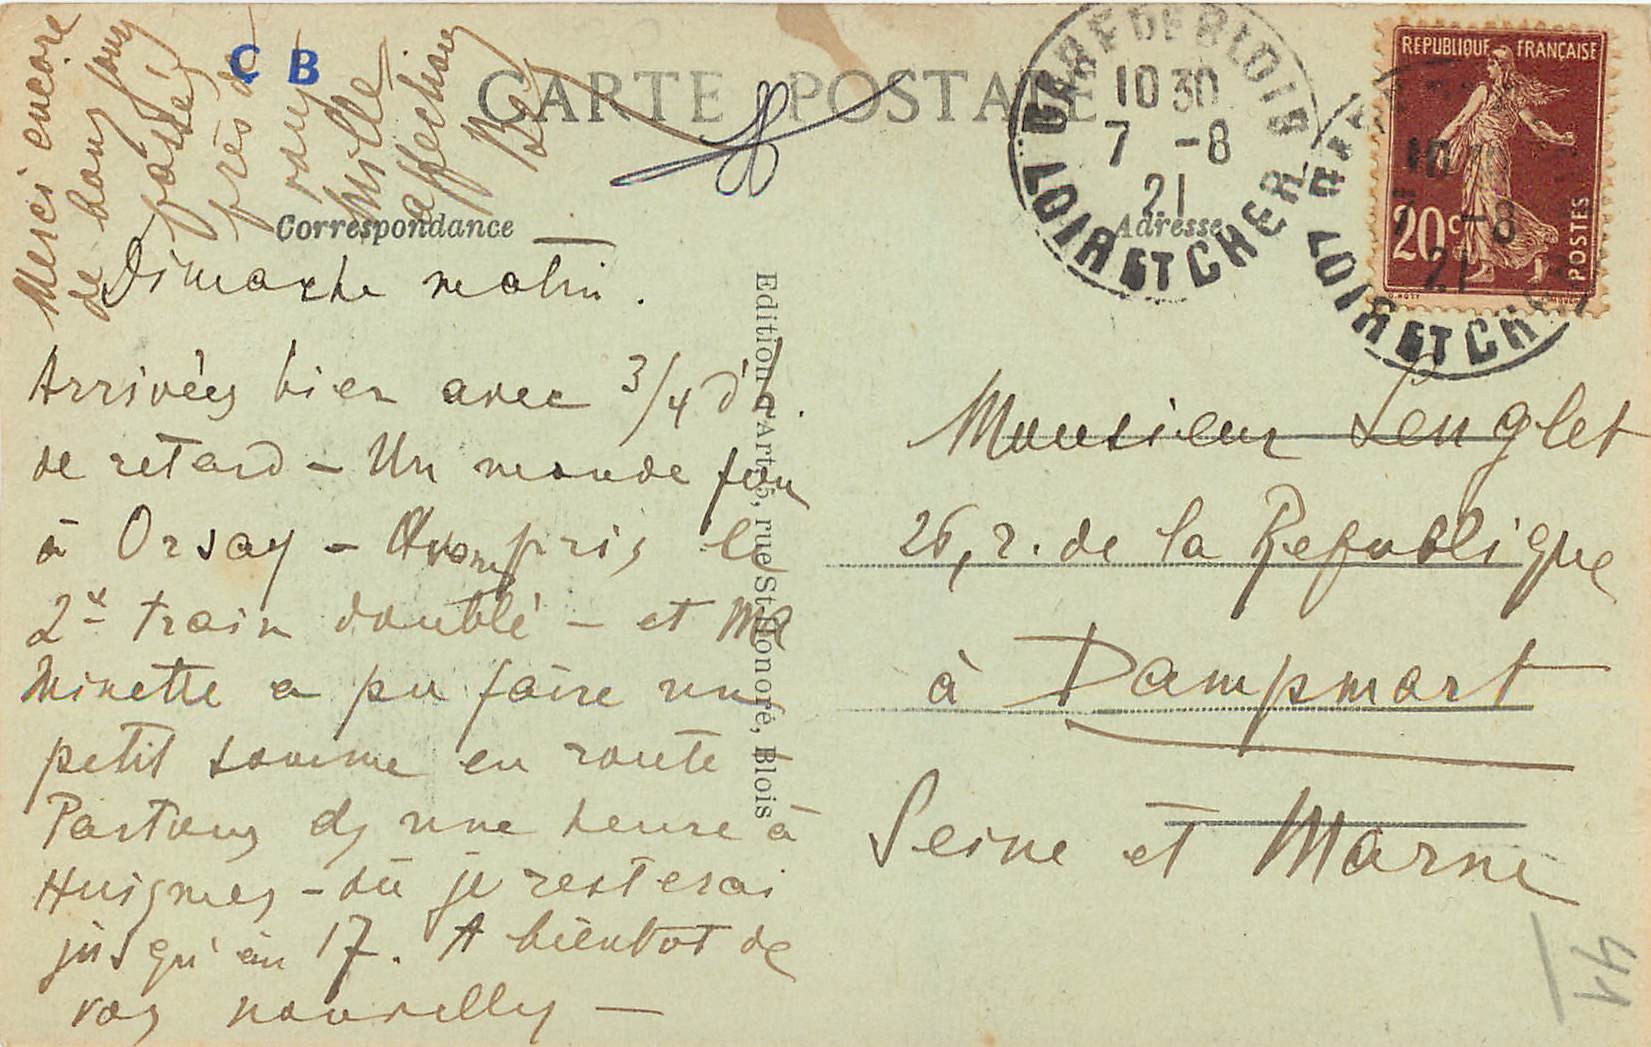 C B
CARTE POSTALE
Correspondance
Adresse
REPUBLIQUE FRANÇAISE
20c
POSTES
GARE DE BLOIS
10 30
7 -8
21
LOIR ET CHER
10 30
7 -8
21
LOIR ET CHER
Dimanche matin.
Arrivées hier avec 3/4 d'h.
de retard - Un monde fou
à Orsay - Avons pris le
2e train doublé - et Ma
Minette a pu faire un
petit somme en route
Partons ds une heure à
Huismes - où je resterai
jusqu'au 17. A bientôt de
vos nouvelles -
Merci encore
de bons jours
passés
près de
vous
Mille
affections
Monsieur Lenglet
26, r. de la République
à Dampmart
Seine et Marne
Edition d'Art, 5, rue St-Honoré, Blois
41